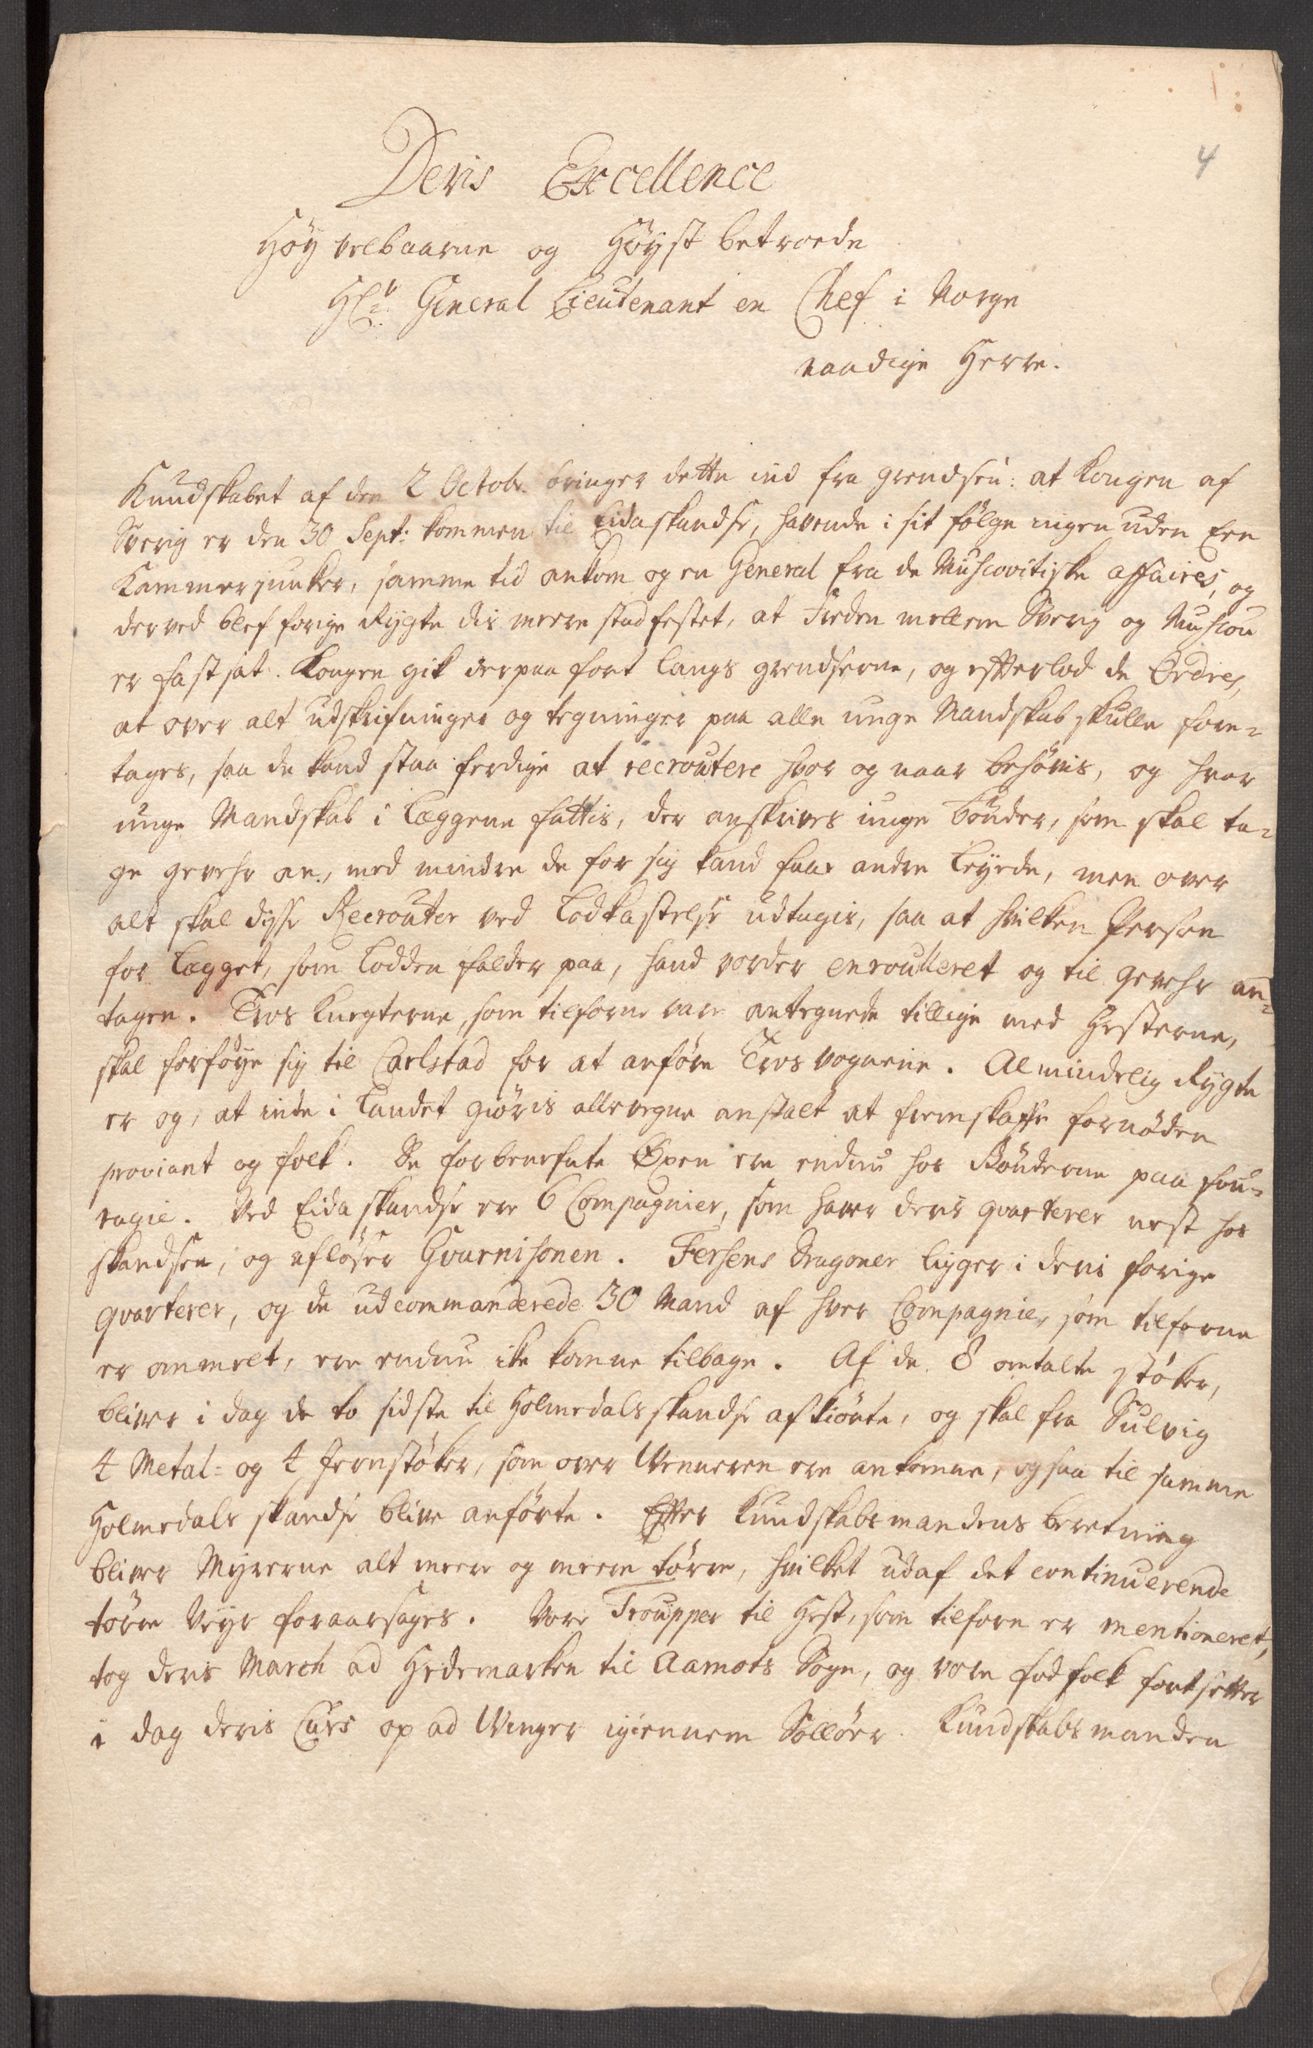 4
Deris Excellence
Höÿ velbaarne og Höÿst betroede
Hr: General Lieutenant en Chef i Norge
naadige Herre.
Kundskabet af den 2 Octobr. bringer dette ind fra grendsen: at Kongen af
Sverig er den 30 Sept: kommen til Eidaskandse, havende i sit fölge ingen uden Een
Kammerjunker, samme tid ankom og en General fra de Muscovitiske affaires, og
derved blef forige Rygte dis meere stadfestet, at Freden mellem Sverig og Muscou
er fastsat. Kongen gik derpaa fort langs grendserne, og efterlod de Ordres,
at over alt udskrifninger og tegninger paa alle unge Mandskab skulle fore-
tages, saa de kand staa ferdige at recroutere hvor og naar behöves, og hvor
unge Mandskab i Læggene fattis, der anskrives unge bönder, som skal ta-
ge gevehr an, med mindre de for sig kand faae andre Leyede, men over
alt skal disse Recrouter ved Lodkastelse udtagis, saa at hvilken Person
for Lægget, som Lodden falder paa, hand vorder enroulleret og til gevehr an-
tagen. Tros knegterne, som tilforne vare antegnede tillige med Hesterne,
skal forföye sig til Carlstad for at anföre Tros vognene. Almindelig Rygte
er og, at inde i Landet giöris allevegne anstalt at fremskaffe fornöden
proviant og folk. De forbenefnte Øxen ere endnu hos Bönderne paa fou-
ragie. Ved Eida skandse ere 6 Compagnier, som haver deris qvarterer nest hos
skandsen, og aflöser Gvarnisonen. Fersens Dragoner ligger i deris forige
qvarterer, og de udcommanderede 30 Mand af hver Compagnie, som tilforne
er ommelt, ere endnu ike komne tilbage. Af de 8 omtalte stöker,
bliver i dag de to sidste til Holmedals skandse afkiörte, og skal fra Sulvig
4 Metal- og 4 Jernstöker, som over Wenneren ere ankomne, ogsaa til samme
Holmedals skandse blive anförte. Efter Kundskabsmandens beretning
bliver Myrerne alt meere og meere törre, hvilket udaf det continuerende
törre Veyr foraarsages. Vore Troupper til Hest, som tilforn er mentioneret,
tog deris March ad Hedemarken til Aamots Sogn, og vore fodfolk fortsetter
i dag deris Cürs op ad Winger igiennem Sollöer. Kundskabsmanden